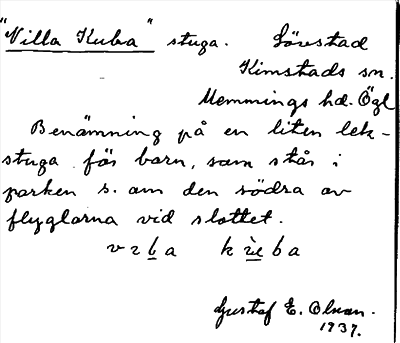 "Villa Kuba" stuga. Lövestad
Kimstads sn.
Memmings hd. Ögl
Benämning på en liten lek-
stuga för barn, som står i
parken s. om den södra av
flyglarna vid slottet.
k ùba
Gustaf E. Olsson.
1937.